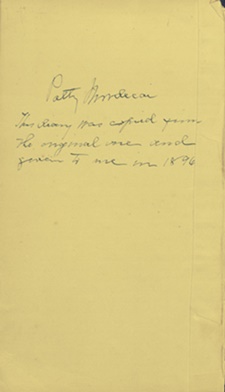 Patty Mordecai
This diary was copied from
the original one and
given to me in 1896